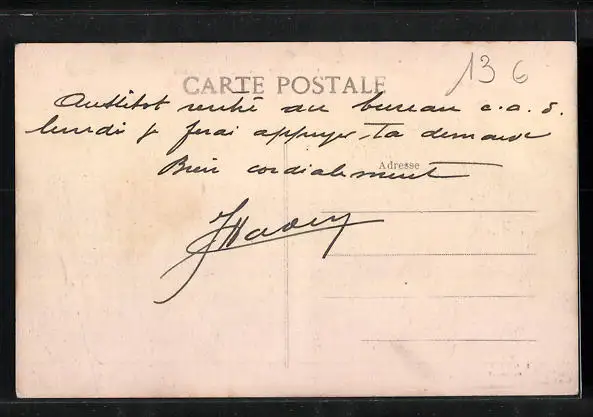 CARTE POSTALE
136
Aussitot rentré au bureau c.a.d.
lundi je ferai appuyer ta demande
Adresse
Bien cordialement